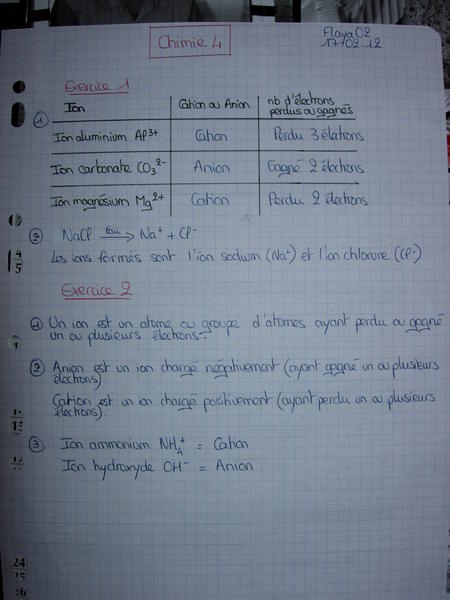 Chimie 4
Flaya02
17-02-12
Exercice 1
① Ion | Cation ou Anion | nb d'électrons perdus ou gagnés
Ion aluminium Al³⁺ | Cation | Perdu 3 électrons
Ion carbonate CO₃²⁻ | Anion | Gagné 2 électrons
Ion magnésium Mg²⁺ | Cation | Perdu 2 électrons
② NaCl —Eau→ Na⁺ + Cl⁻
Les ions formés sont l'ion sodium (Na⁺) et l'ion chlorure (Cl⁻)
Exercice 2
① Un ion est un atome ou groupe d'atomes ayant perdu ou gagné
un ou plusieurs électrons.
② Anion est un ion chargé négativement (ayant gagné un ou plusieurs
électrons)
Cation est un ion chargé positivement (ayant perdu un ou plusieurs
électrons).
③ Ion ammonium NH₄⁺ = Cation
Ion hydroxyde OH⁻ = Anion
4
5
15
24
25
26